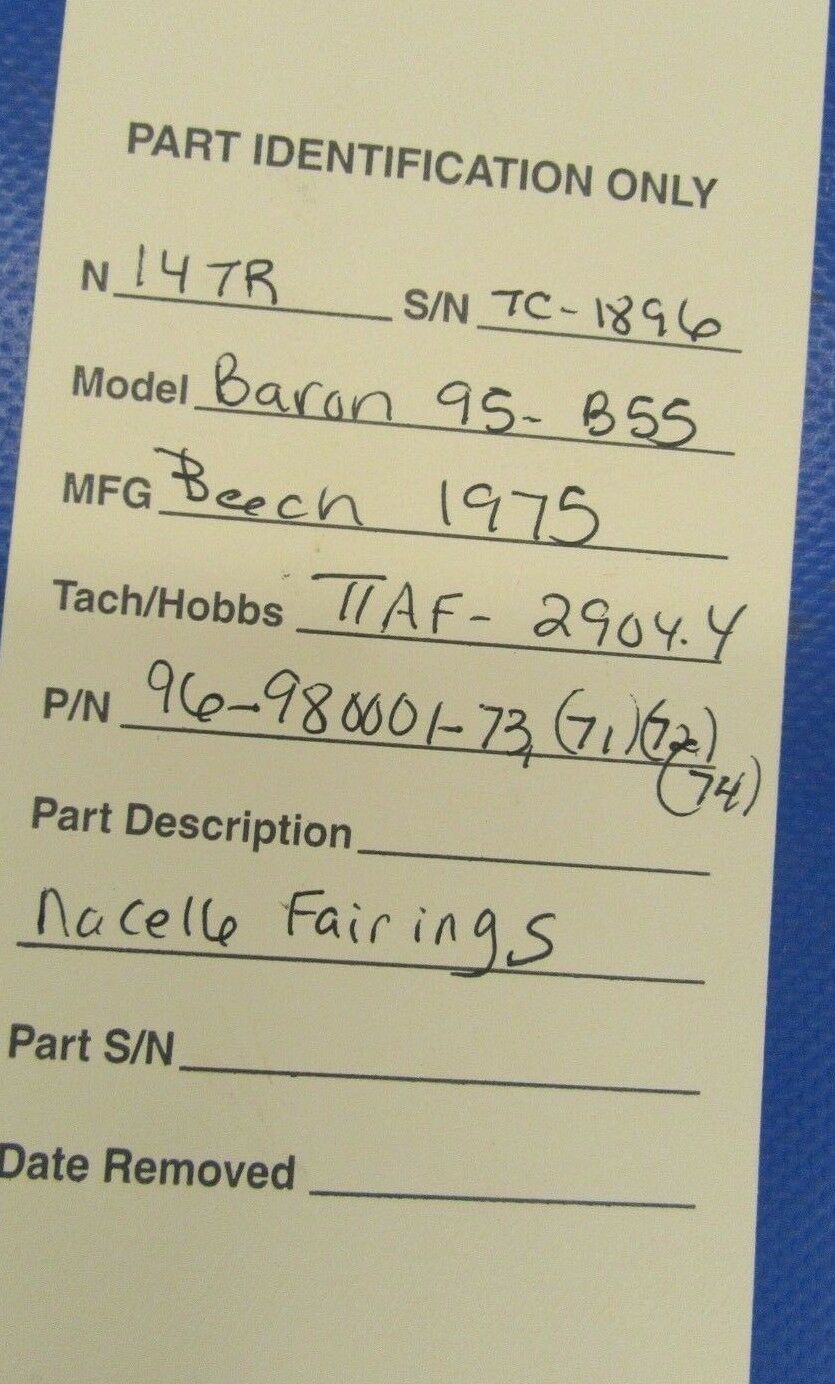 PART IDENTIFICATION ONLY
N 147R S/N TC-1896
Model Baron 95- B55
MFG Beech 1975
Tach/Hobbs TTAF- 2904.4
P/N 96-980001-73, (71)(72)
(74)
Part Description
Nacelle Fairings
Part S/N
Date Removed